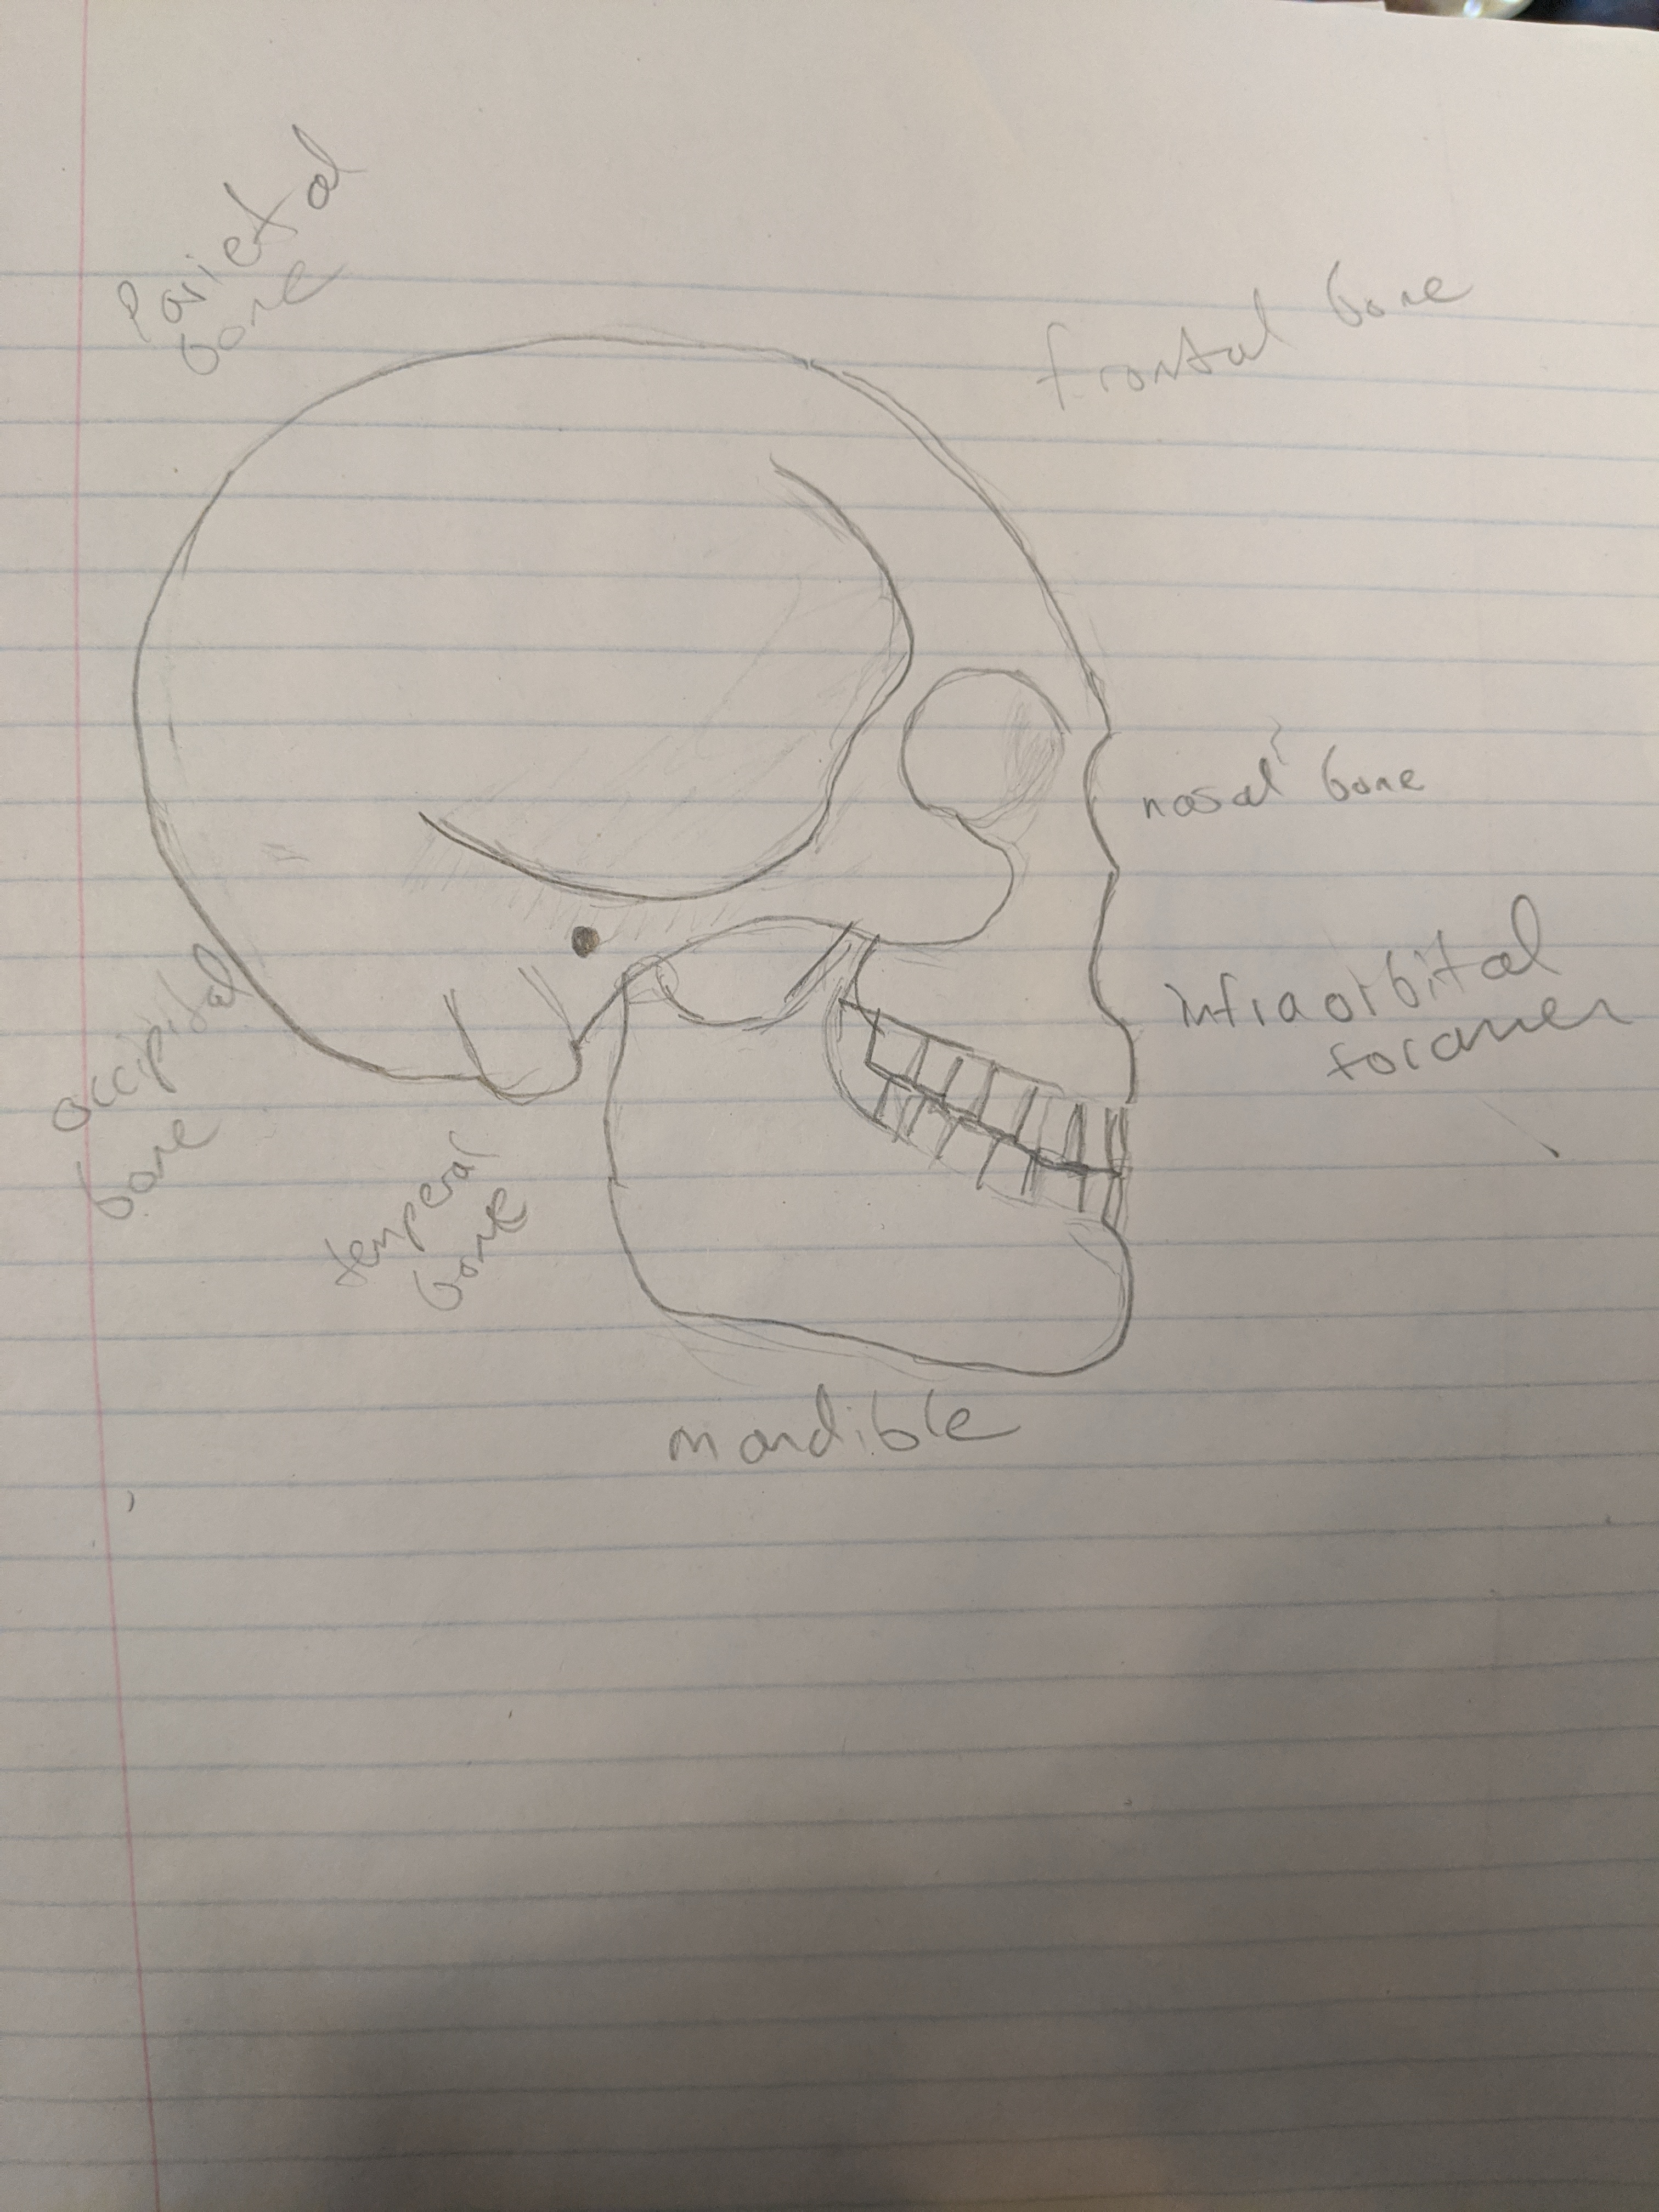 Parietal
bone
frontal bone
nasal bone
infraorbital
foramen
occipital
bone
temperal
bone
mandible